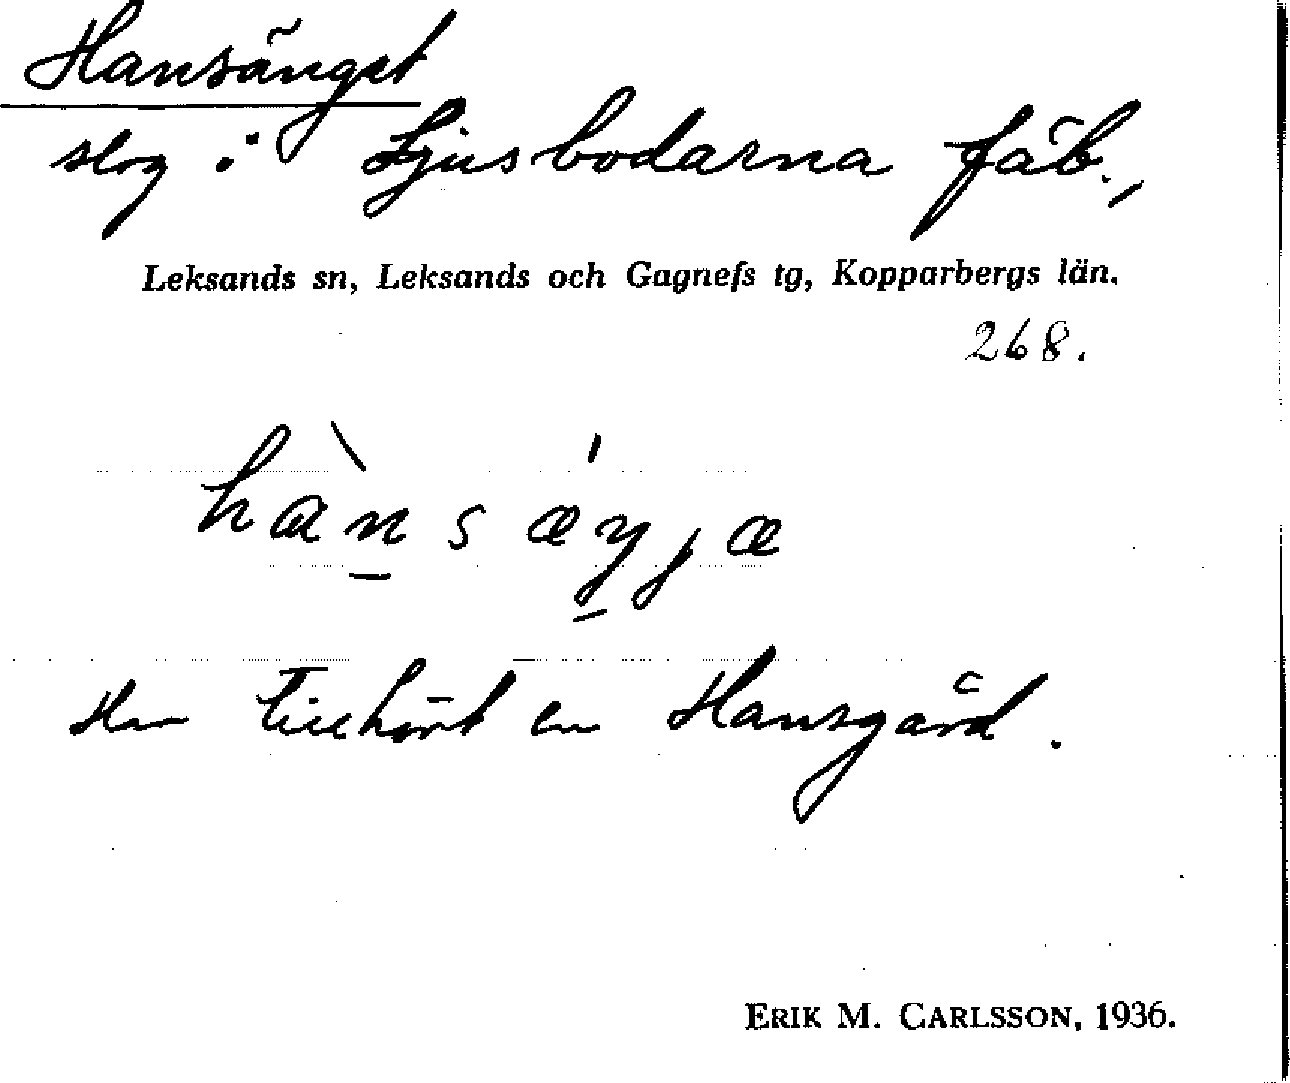 Hansänget
slog i Ljusbodarna fäb.,
Leksands sn, Leksands och Gagnefs tg, Kopparbergs län.
268.
hàn̲sǽŋ̲jæ
Har tillhört en Hansgård.
ERIK M. CARLSSON, 1936.